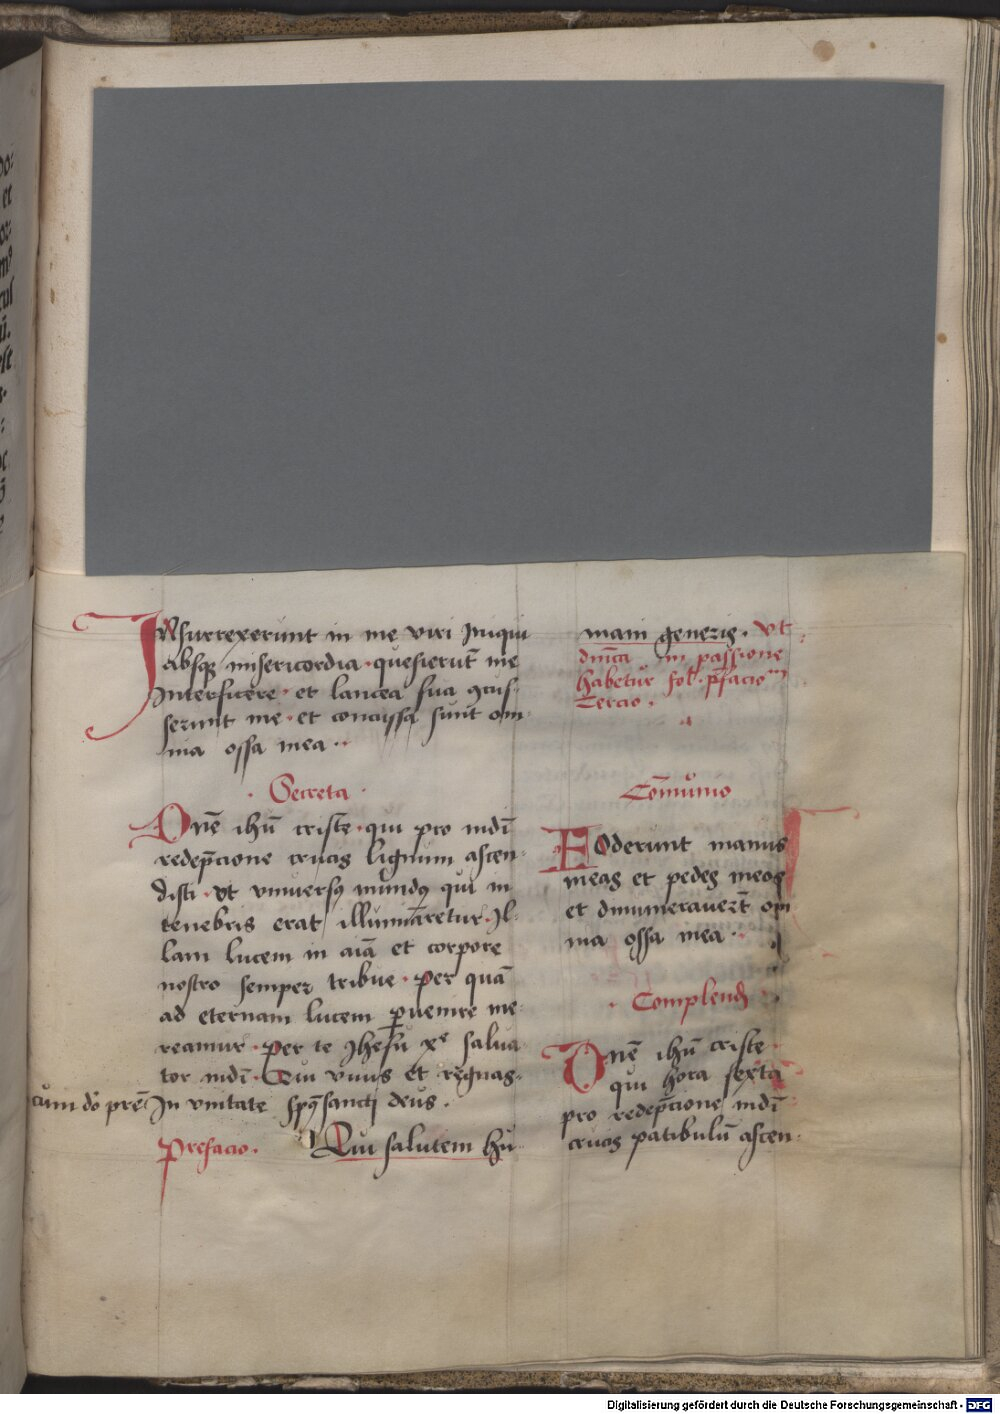 INsurrexerunt in me viri Iniqui
absqꝫ misericordia · quesierūt me
Interficere · et lancea sua ꝯcus-
serunt me · et concussa sunt om
nia ossa mea ··
· Secreta ·
Dn̄e ihū criste · qui pro mdī
redep̄cione crucis lignum ascen-
disti · vt vniversꝰ mūndꝰ qui in
tenebris erat illumīaretur · Il-
lam lucem in aīā et corpore
nostro semper tribue · per quā
ad eternam lucem ꝑuenire me
reamur · Per te Ihesū xᵉ salua
tor mdī · Qui viuis et regnas-
cūm dō prē In vnitate spūssancti deus ·
Prefacio · Qui salutem hu-
mani generis · vt
dnīca in passione
habetur fol · p̄facioᵐ
Tercio ·
Cōmunio
FOderunt manus
meas et pedes meos
et dinumeraverūt om
nia ossa mea ··
· Complendꝫ ·
Dn̄e ihū criste
qui hora sexta
pro redep̄cione mdī
crucis patibulū ascen-
Digitalisierung gefördert durch die Deutsche Forschungsgemeinschaft - DFG